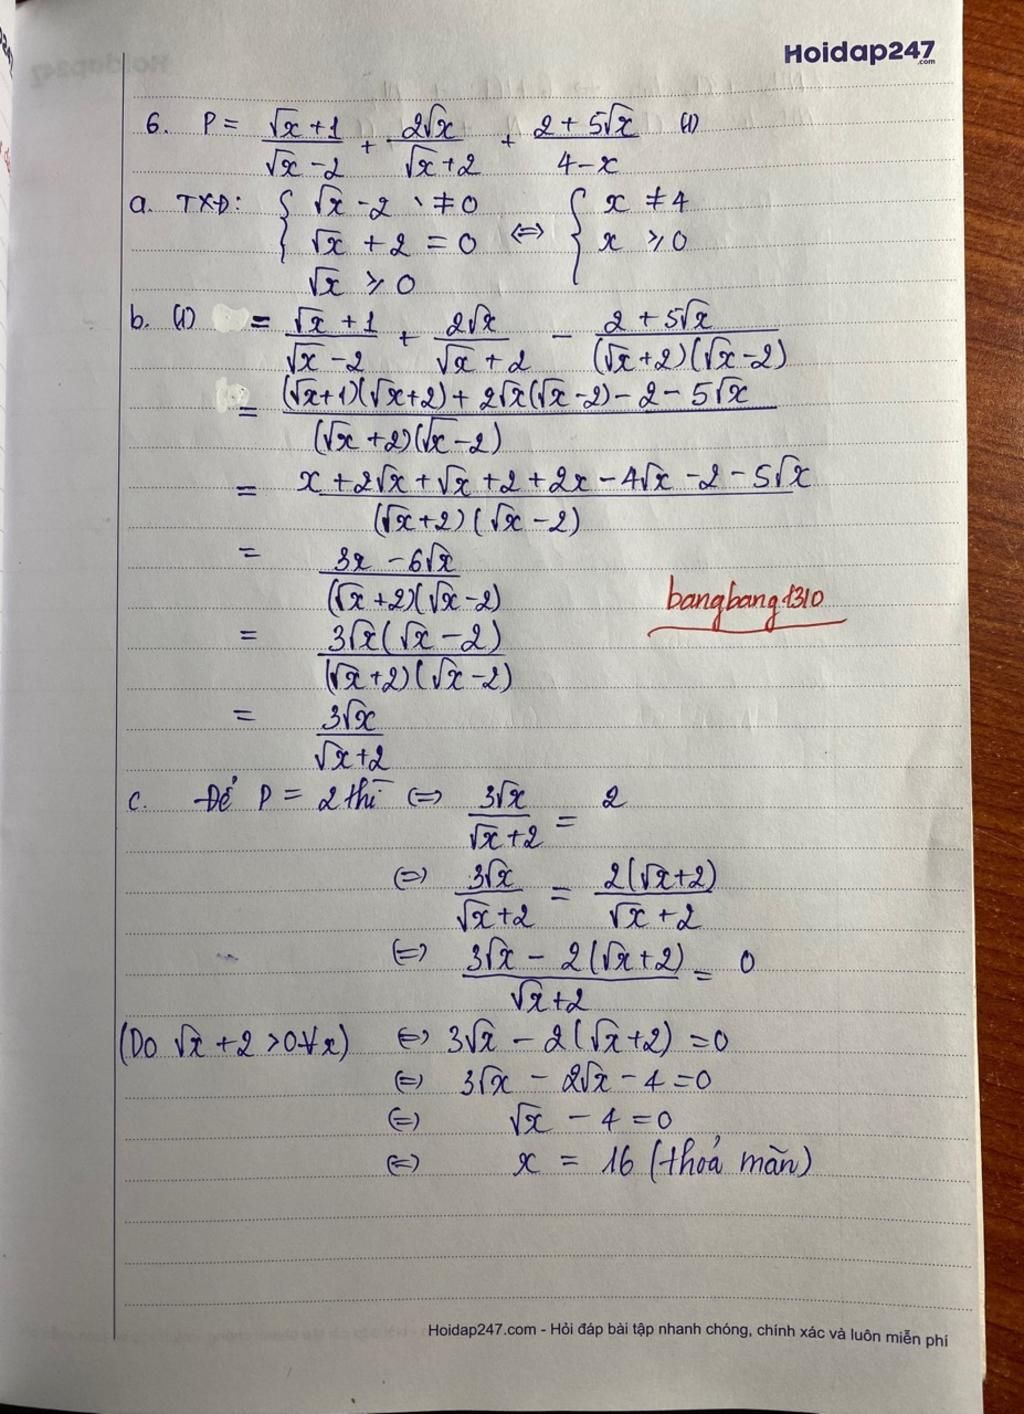 Hoidap247
.com
6. P = (√x + 1)/(√x - 2) + 2√x/(√x + 2) + (2 + 5√x)/(4 - x) (1)
a. TXĐ: { √x - 2 ≠ 0 ⇔ { x ≠ 4
√x + 2 = 0 x ⩾ 0
√x ⩾ 0
b. (1) = (√x + 1)/(√x - 2) + 2√x/(√x + 2) - (2 + 5√x)/((√x + 2)(√x - 2))
= ((√x + 1)(√x + 2) + 2√x(√x - 2) - 2 - 5√x)/((√x + 2)(√x - 2))
= (x + 2√x + √x + 2 + 2x - 4√x - 2 - 5√x)/((√x + 2)(√x - 2))
= (3x - 6√x)/((√x + 2)(√x - 2))
bangbang1310
= 3√x(√x - 2)/((√x + 2)(√x - 2))
= 3√x/(√x + 2)
c. Để P = 2 thì ⇔ 3√x/(√x + 2) = 2
⇔ 3√x/(√x + 2) = 2(√x + 2)/(√x + 2)
⇔ (3√x - 2(√x + 2))/(√x + 2) = 0
(Do √x + 2 > 0 ∀x) ⇔ 3√x - 2(√x + 2) = 0
⇔ 3√x - 2√x - 4 = 0
⇔ √x - 4 = 0
⇔ x = 16 (thoả mãn)
Hoidap247.com - Hỏi đáp bài tập nhanh chóng, chính xác và luôn miễn phí